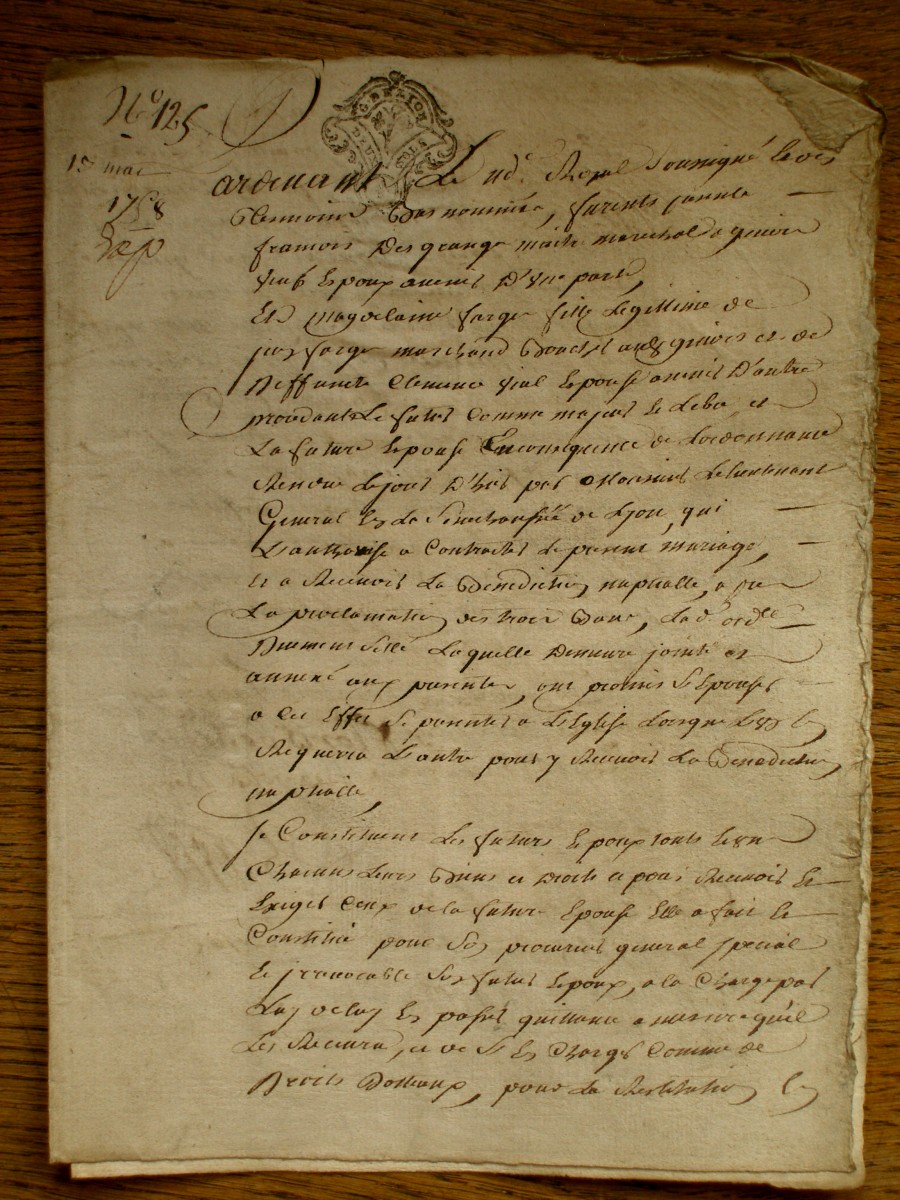 N° 125
1758
Exp
GENERATION DE LYON
Pardevant Le no.re Royal Soussigné
furents presents
françois Desgrange maitre marechal a
Epoux avenir D'une part,
Et Magdelaine farge fille Legittime de
farge marchand Boucher et de
Deffuncte Clemence Vial Epouse avenir D'autre
procedants Le futur Comme majeur et Libre, et
La future Epouse En consequence de Lordonnance
Rendue Le jour D'hier par Monsieur Le Lieutenant
General En La Senechaussée de Lyon, qui
L'authorise a Contracter Le present mariage,
Et a Recevoir La Benediction nuptialle,
La proclamation des trois Bans, La d. ord.ce
Duement Sellé Laquelle Demeure jointe et
annexé aux presentes, ont promis S'Epouser
a Cet Effet Se presenter a L'Eglise Lorsque L'un En
Requerra L'autre pour y Recevoir La Benediction
nuptialle,
Se Constituent Les futurs Epoux touts Et un
Chacuns Leurs Biens et Droits et pour Recevoir Et
Exiger Ceux de la future Epouse Elle a fait Et
Constitué pour Son procureur general special
Et jrrevocable Son futur Epoux, a la Charge par
Luy de Luy En passer quittance a mesure qu'il
Les Recevra, et de S'En Charger Comme de
Droits Dottaux, pour La Restitution En